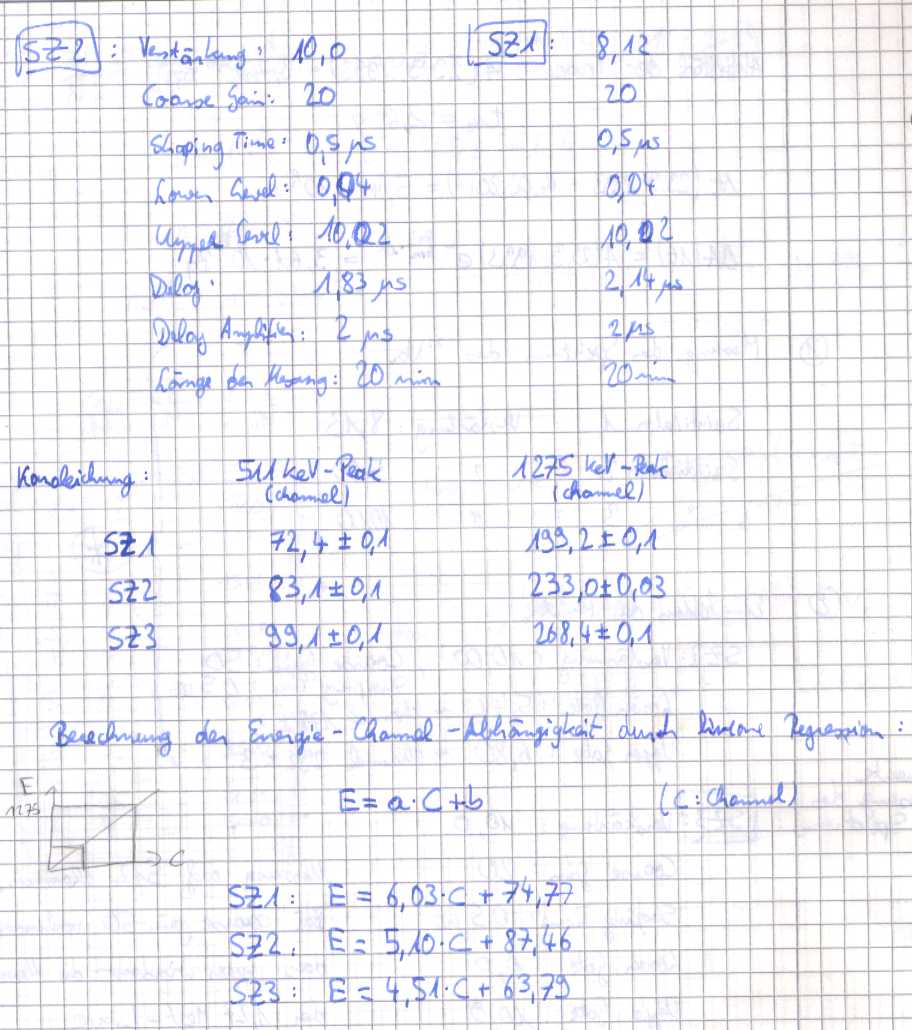 SZ2: Verstärkung: 10,0 SZ1: 8,12
Coarse Gain: 20 20
Shaping Time: 0,5 µs 0,5 µs
Lower Level: 0,04 0,04
Upper Level: 10,02 10,02
Delay: 1,83 µs 2,14 µs
Delay Amplifier: 2 µs 2 µs
Länge der Messung: 20 min 20 min
Kanaleichung: 511 keV-Peak 1275 keV-Peak
(channel) (channel)
SZ1 72,4 ± 0,1 199,2 ± 0,1
SZ2 83,1 ± 0,1 233,0 ± 0,03
SZ3 99,1 ± 0,1 268,4 ± 0,1
Berechnung der Energie-Channel-Abhängigkeit durch lineare Regression:
E
1275
E = a · C + b (C: Channel)
C
SZ1: E = 6,03 · C + 74,77
SZ2: E = 5,10 · C + 87,46
SZ3: E = 4,51 · C + 63,79